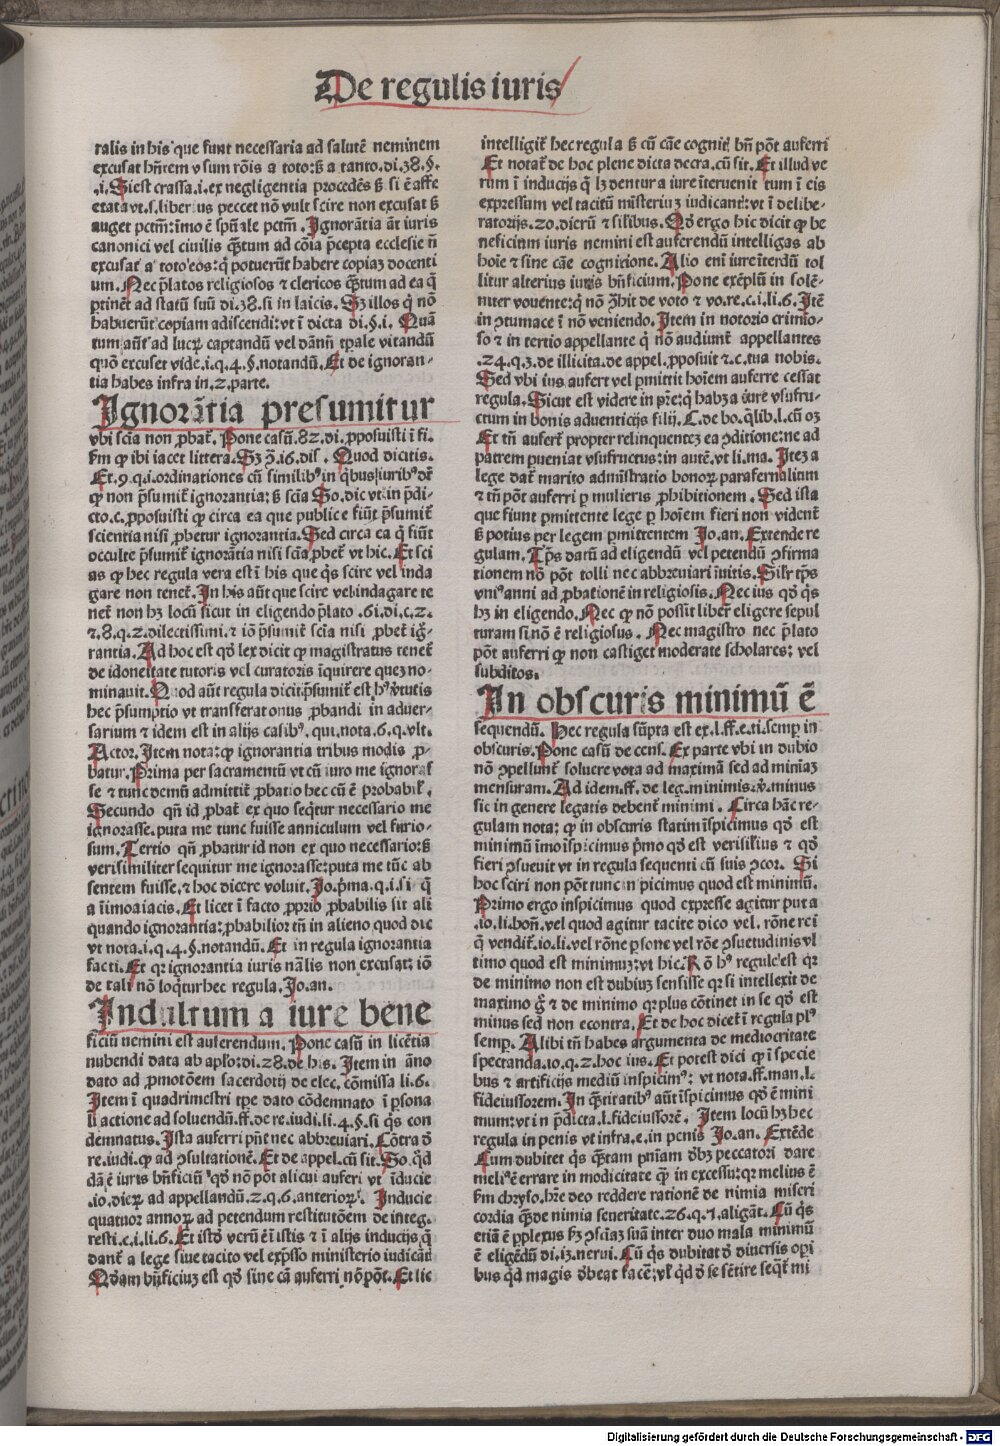 De regulis iuris
ralis in his que sunt necessaria ad salutē neminem
excusat hn̄tem vsum rōis a toto: s̄ a tanto. di. 38. §.
.i. Si est crassa .i. ex negligentia procedēs s̄ si ē affe
ctata vt .s. liberius peccet nō vult scire non excusat s̄
auget pctm̄: imo ē spūale pctm̄. Ignorātia āt iuris
canonici vel ciuilis q̄tum ad cōia p̄cepta ecclesie n̄
excusat a toto eos: q̄ potuerūt habere copiaꝫ docenti
um. Nec p̄latos religiosos ⁊ clericos q̄tum ad ea q̄
ꝑtinēt ad statū suū di. 38. si in laicis. Sꝫ illos q̄ nō
habuerūt copiam adiscendi: vt i dicta di. §. i. Quā
tum aūt ad lucꝝ captandū vel dānū tp̄ale vitandū
quō excuset vide .i. q. 4. §. notandū. Et de ignoran-
tia habes infra in .2. parte.
Ignorātia presumitur
vbi scīa non ꝓbat̄. Pone casū. 82. di. ꝓposuisti i fi.
s̄m ꝙ ibi iacet littera. Sꝫ ꝯ̄. 16. dis. Quod dicitis.
Et .9. q. i. ordinationes cū similibꝰ in q̄bus iuribꝰ dr̄
ꝙ non p̄sumit̄ ignorantia: s̄ scīa So. dic vt in p̄di-
cto .c. ꝓposuisti ꝙ circa ea que publice fiūt p̄sumit̄
scientia nisi ꝓbetur ignorantia. Sed circa ea q̄ fiūt
occulte p̄sumit̄ ignorātia nisi scīa ꝓbet̄ vt hic. Et sci
as ꝙ hec regula vera est i his que q̄s scire vel inda
gare non tenet̄. In his aūt que scire vel indagare te
net̄ non hꝫ locū sicut in eligendo p̄lato .61. di. c. 2.
⁊ .8. q. 2. dilectissimi. ⁊ iō p̄sumit̄ scīa nisi ꝓbet̄ ig-
rantia. Ad hoc est qd̄ lex dicit ꝙ magistratus tenet̄
de idoneitate tutoris vel curatoris iquirere quez no-
minauit. Quod aūt regula dicit p̄sumit̄ est hꝰ v̄tutis
hec p̄sumptio vt transferat onus ꝓbandi in aduer-
sarium ⁊ idem est in alijs casibꝰ. qui. nota. 6. q. vlt.
Actor. Item nota: ꝙ ignorantia tribus modis ꝓ-
batur. Prima per sacramentū vt cū iuro me ignoras
se ⁊ tunc demū admittit̄ ꝓbatio hec cū ē probabil̄.
Secundo qn̄ id ꝓbat̄ ex quo seqt̄ur necessario me
ignorasse. puta me tunc fuisse anniculum vel furio-
sum. Tertio qn̄ ꝓbatur id non ex quo necessario: s̄
verisimiliter sequitur me ignorasse: puta me tūc ab
sentem fuisse. ⁊ hoc dicere voluit. Jo. p̄ma. q. i. si q̄
a simoaiacis. Et licet i facto ꝓprio ꝓbabilis sit ali
quando ignorantia: ꝓbabilior tn̄ in alieno quod dic
vt nota. i. q. 4. §. notandū. Et in regula ignorantia
facti. Et qꝛ ignorantia iuris nālis non excusat: iō
de tali nō loq̄tur hec regula. Jo. an.
Indultum a iure bene
ficiū nemini est auferendum. Pone casū in licētia
nubendi data ab aplo: di. 28. de his. Item in āno
dato ad ꝓmotōem sacerdotij de elec. cōmissa li. 6.
Item i quadrimestri tp̄e dato cōdemnato i ꝑsona
li actione ad soluendū. ff. de re. iudi. li. 4. §. si q̄s con
demnatus. Ista auferri pn̄t nec abbreuiari. Cōtra d̄
re. iudi. ꝙ ad ꝯsultationē. Et de appel. cū sit. So. q̄d
dā ē iuris bn̄ficiū qd̄ nō pōt alicui auferi vt iducie
.10. dieꝝ ad appellandū. 2. q. 6. anterioꝝ. Inducie
quatuor annoꝝ ad petendum restitutōem de integ.
resti. c. i. li. 6. Et istd̄ verū ē i istis ⁊ i alijs inducijs q̄
dant̄ a lege siue tacito vel exp̄sso ministerio iudicād
Qd̄am bn̄ficiuꝫ est qd̄ sine cā auferri nō pōt. Et sic
intelligit̄ hec regula s̄ cū cāe cognit̄ bn̄ pōt auferri
Et notat̄ de hoc plene dicta decra. cū sit. Et illud ve
rum ī inducijs q̄ lꝫ dentur a iure iteruenit tum ī eis
expressum vel tacitū misteriuꝫ iudicant̄: vt i delibe-
ratorijs. 20. dierū ⁊ silibus. Qd̄ ergo hic dicit ꝙ be
neficium iuris nemini est auferendū intelligas ab
hoīe ⁊ sine cāe cognitione. Alio eni iure iterdū tol
litur alterius iuris bn̄ficium. Pone exēplū in solē-
niter vouente: q̄ nō ꝓhit de voto ⁊ vo. re. c. i. li. 6. Itē
in ꝯtumace i nō veniendo. Item in notorio crimio-
so ⁊ in tertio appellante q̄ nō audiunt̄ appellantes
.24. q. 3. de illicita. de appel. ꝓposuit ⁊ .c. tua nobis.
Sed vbi ius aufert vel ꝑmittit hoīem auferre cessat
regula. Sicut est videre in pr̄e: q̄ habꝫ a iure vsufru-
ctum in bonis aduenticijs filij. C. de bo. q̄ lib. l. cū oꝫ
Et tn̄ aufert̄ propter relinquenteꝫ ea ꝯditione: ne ad
patrem ꝑueniat vsufructus: in autē. vt li. ma. Iteꝫ a
lege dat̄ marito adminstratio bonoꝝ parafernalium
⁊ tn̄ pōt auferri ꝑ mulieris ꝓhibitionem. Sed ista
que fiunt ꝑmittente lege ꝑ hoīem fieri non vident̄
s̄ potius per legem ꝑmittentem Jo. an. Extende re
gulam. Tp̄s datū ad eligendū vel petendū ꝯfirma
tionem nō pōt tolli nec abbreuiari iuitis. Silr̄ tp̄s
vniꝰ anni ad ꝓbationē in religiosis. Nec ius qd̄ q̄s
hꝫ in eligendo. Nec ꝙ nō possit liber̄ eligere sepul
turam si nō ē religiosus. Nec magistro nec p̄lato
pōt auferri ꝙ non castiget moderate scholares: vel
subditos.
In obscuris minimū ē
sequendū. Hec regula sūpta est ex .l. ff. e. ti. semꝑ in
obscuris. Pone casū de cens. Ex parte vbi in dubio
nō ꝯpellunt̄ soluere vota ad maximā sed ad miniaꝫ
mensuram. Ad idem. ff. de leg. minimis. v̄. minus
sic in genere legatis debent̄ minimi. Circa hāc re-
gulam nota: ꝙ in obscuris statim ispicimus qd̄ est
minimū imo ispicimus p̄mo qd̄ est verisilius ⁊ qd̄
fieri ꝯsueuit vt in regula sequenti cū suis ꝯcor. Si
hoc sciri non pōt tunc inspicimus quod est minimū.
Primo ergo inspicimus quod expresse agitur puta
.10. li. bon. vel quod agitur tacite dico vel. rōne rei
q̄ vendit̄. 10. li. vel rōne ꝑsone vel rōe ꝯsuetudinis vl
timo quod est minimuꝫ: vt hic. Rō hꝰ regule est qꝛ
de minimo non est dubiuꝫ sensisse qꝛ si intellexit de
maximo g̊ ⁊ de minimo qꝛ plus cōtinet in se qd̄ est
minus sed non econtra. Et de hoc dicet̄ i regula plꝰ
semꝑ. Alibi tn̄ habes argumenta de mediocritate
spectanda. 10. q. 2. hoc ius. Et potest dici ꝙ i specie
bus ⁊ artificijs mediū inspicimꝰ: vt nota. ff. man. l.
fideiussorem. In q̄titatibꝰ aūt ispicimus qd̄ ē mini
mum: vt i n p̄dicta. l. fideiussorē. Item locū hꝫ hec
regula in penis vt infra. e. in penis Jo. an. Extēde
Cum dubitet q̄s q̄tam pn̄iam dꝫ peccatori dare
meliꝰ ē errare in modicitate q̄ in excessu: qꝛ melius ē
s̄m chryso. hr̄e deo reddere rationē de nimia miseri
cordia q̄ de nimia seueritate. 26. q. 7. aligāt. Cū q̄s
etiā ē ꝑplexus s̄m ꝯsciaꝫ suā inter duo mala minimū
ē eligēdū di. 13. nerui. Cū q̄s dubitat d̄ diuersis opi
bus q̄d magis d̄beat facē: vl̄ q̄d d̄ se sētire seq̄t̄ mi
Digitalisierung gefördert durch die Deutsche Forschungsgemeinschaft - DFG